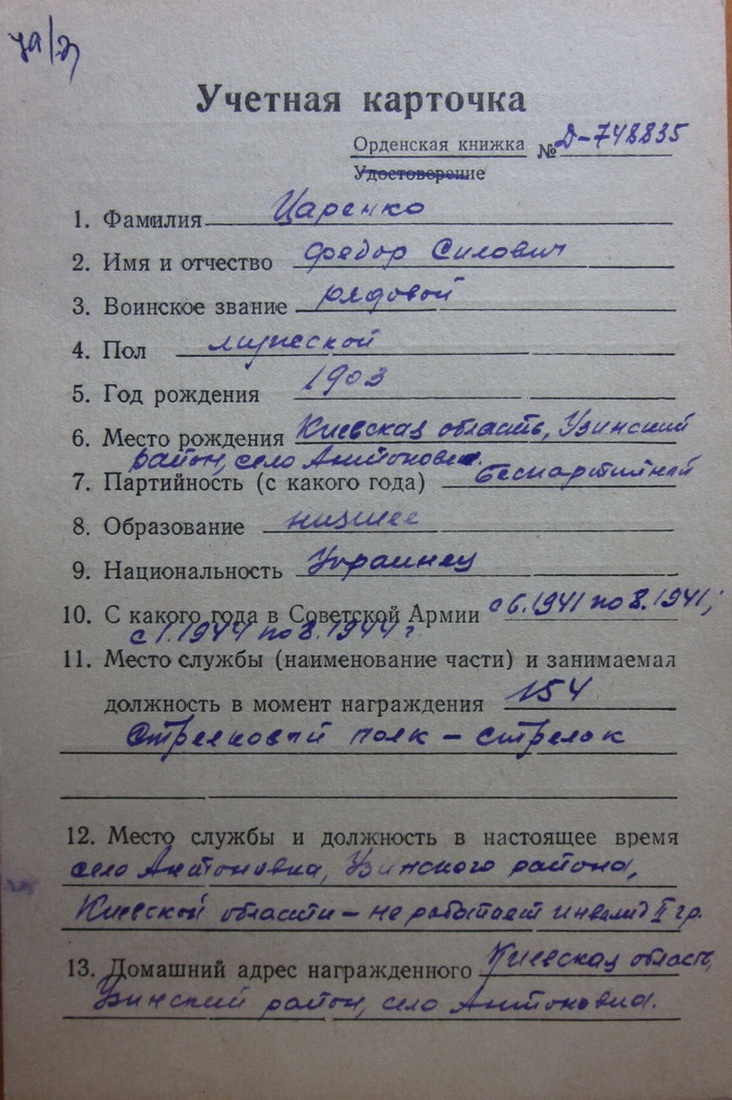 Учетная карточка
Орденская книжка № Д-748835
Удостоверение
1. Фамилия Царенко
2. Имя и отчество Федор Силович
3. Воинское звание рядовой
4. Пол мужской
5. Год рождения 1903
6. Место рождения Киевская область, Узинский
район, село Антоновка.
7. Партийность (с какого года) беспартийный
8. Образование низшее
9. Национальность Украинец
10. С какого года в Советской Армии с 6.1941 по 8.1941;
с 1.1944 по 8.1944 г.
11. Место службы (наименование части) и занимаемая
должность в момент награждения 154
Стрелковый полк - стрелок
12. Место службы и должность в настоящее время
село Антоновка, Узинского района,
Киевской области - не работает инвалид II гр.
13. Домашний адрес награжденного Киевская область,
Узинский район, село Антоновка.